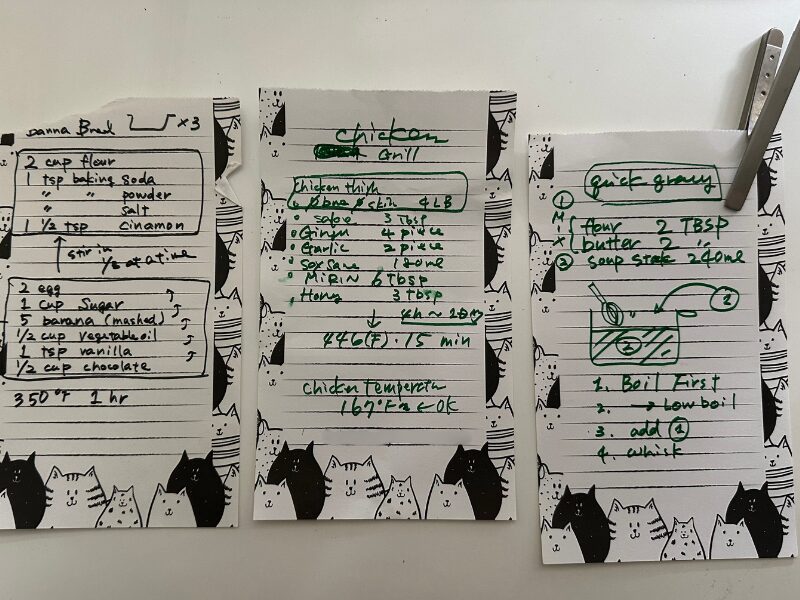 Banna Bread ×3
2 cup flour
1 tsp baking soda
" " powder
" salt
1 1/2 tsp cinamon
stir in
1/3 at a time
2 egg
1 cup sugar
5 banana (mashed)
1/2 cup vegetable oil
1 tsp vanilla
1/2 cup chocolate
350°F 1 hr
chicken
Grill
Chicken thigh
skin 4LB
Sake 3 Tbsp
Ginger 4 piece
Garlic 2 piece
Soy Sauce 180ml
MiRiN 6 Tbsp
Hony 3 Tbsp
4h ~
446(F) · 15 min
chicken Temperatur
167°F ← OK
quick gravy
①
MIX
flour 2 TBSP
butter 2 "
② soup stock 240ml
①
②
1. Boil First
2. → Low boil
3. add ①
4. whisk